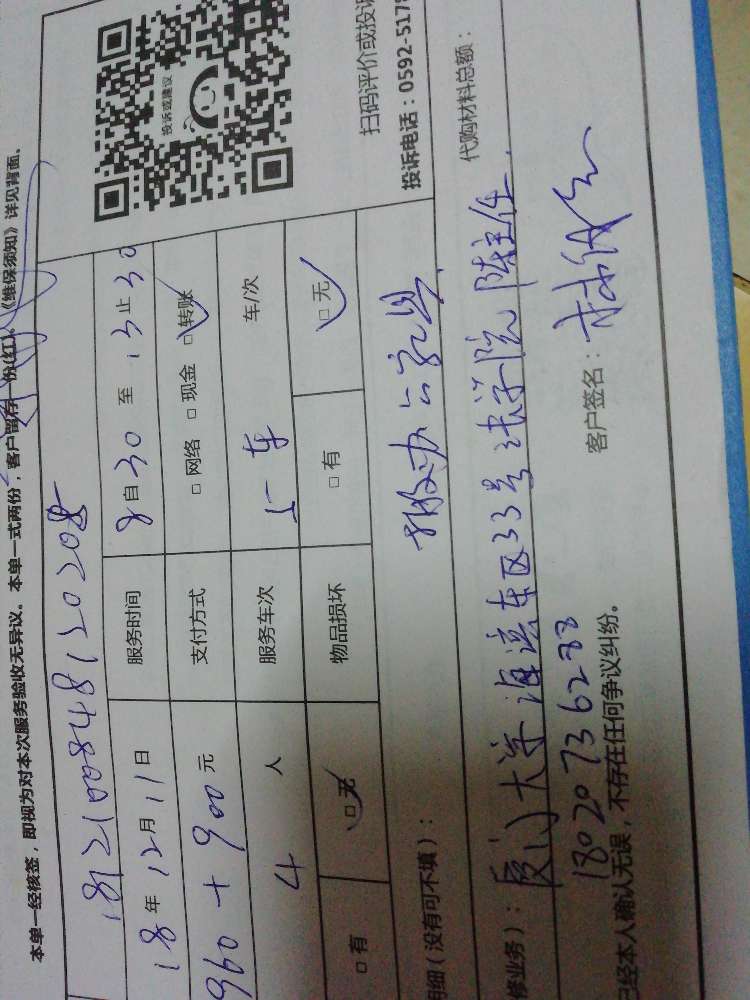 本单一经核签，即视为对本次服务验收无异议。本单一式两份，客户留存一份(红)。《维保须知》详见背面。
181210084811202085
18年12月11日 服务时间 8自30至13止30
960+900元 支付方式 □网络 □现金 □转账
4人 服务车次 车/次
□有 □无 物品损坏 □有 □无
投诉或建议
扫码评价或投诉
投诉电话：0592-5178
明细（没有可不填）： 搬办公家具
代购材料总额：
修业务）：厦门大学海滨东区33号法学院 陈主任
18020736288
客户签名：
已经本人确认无误，不存在任何争议纠纷。